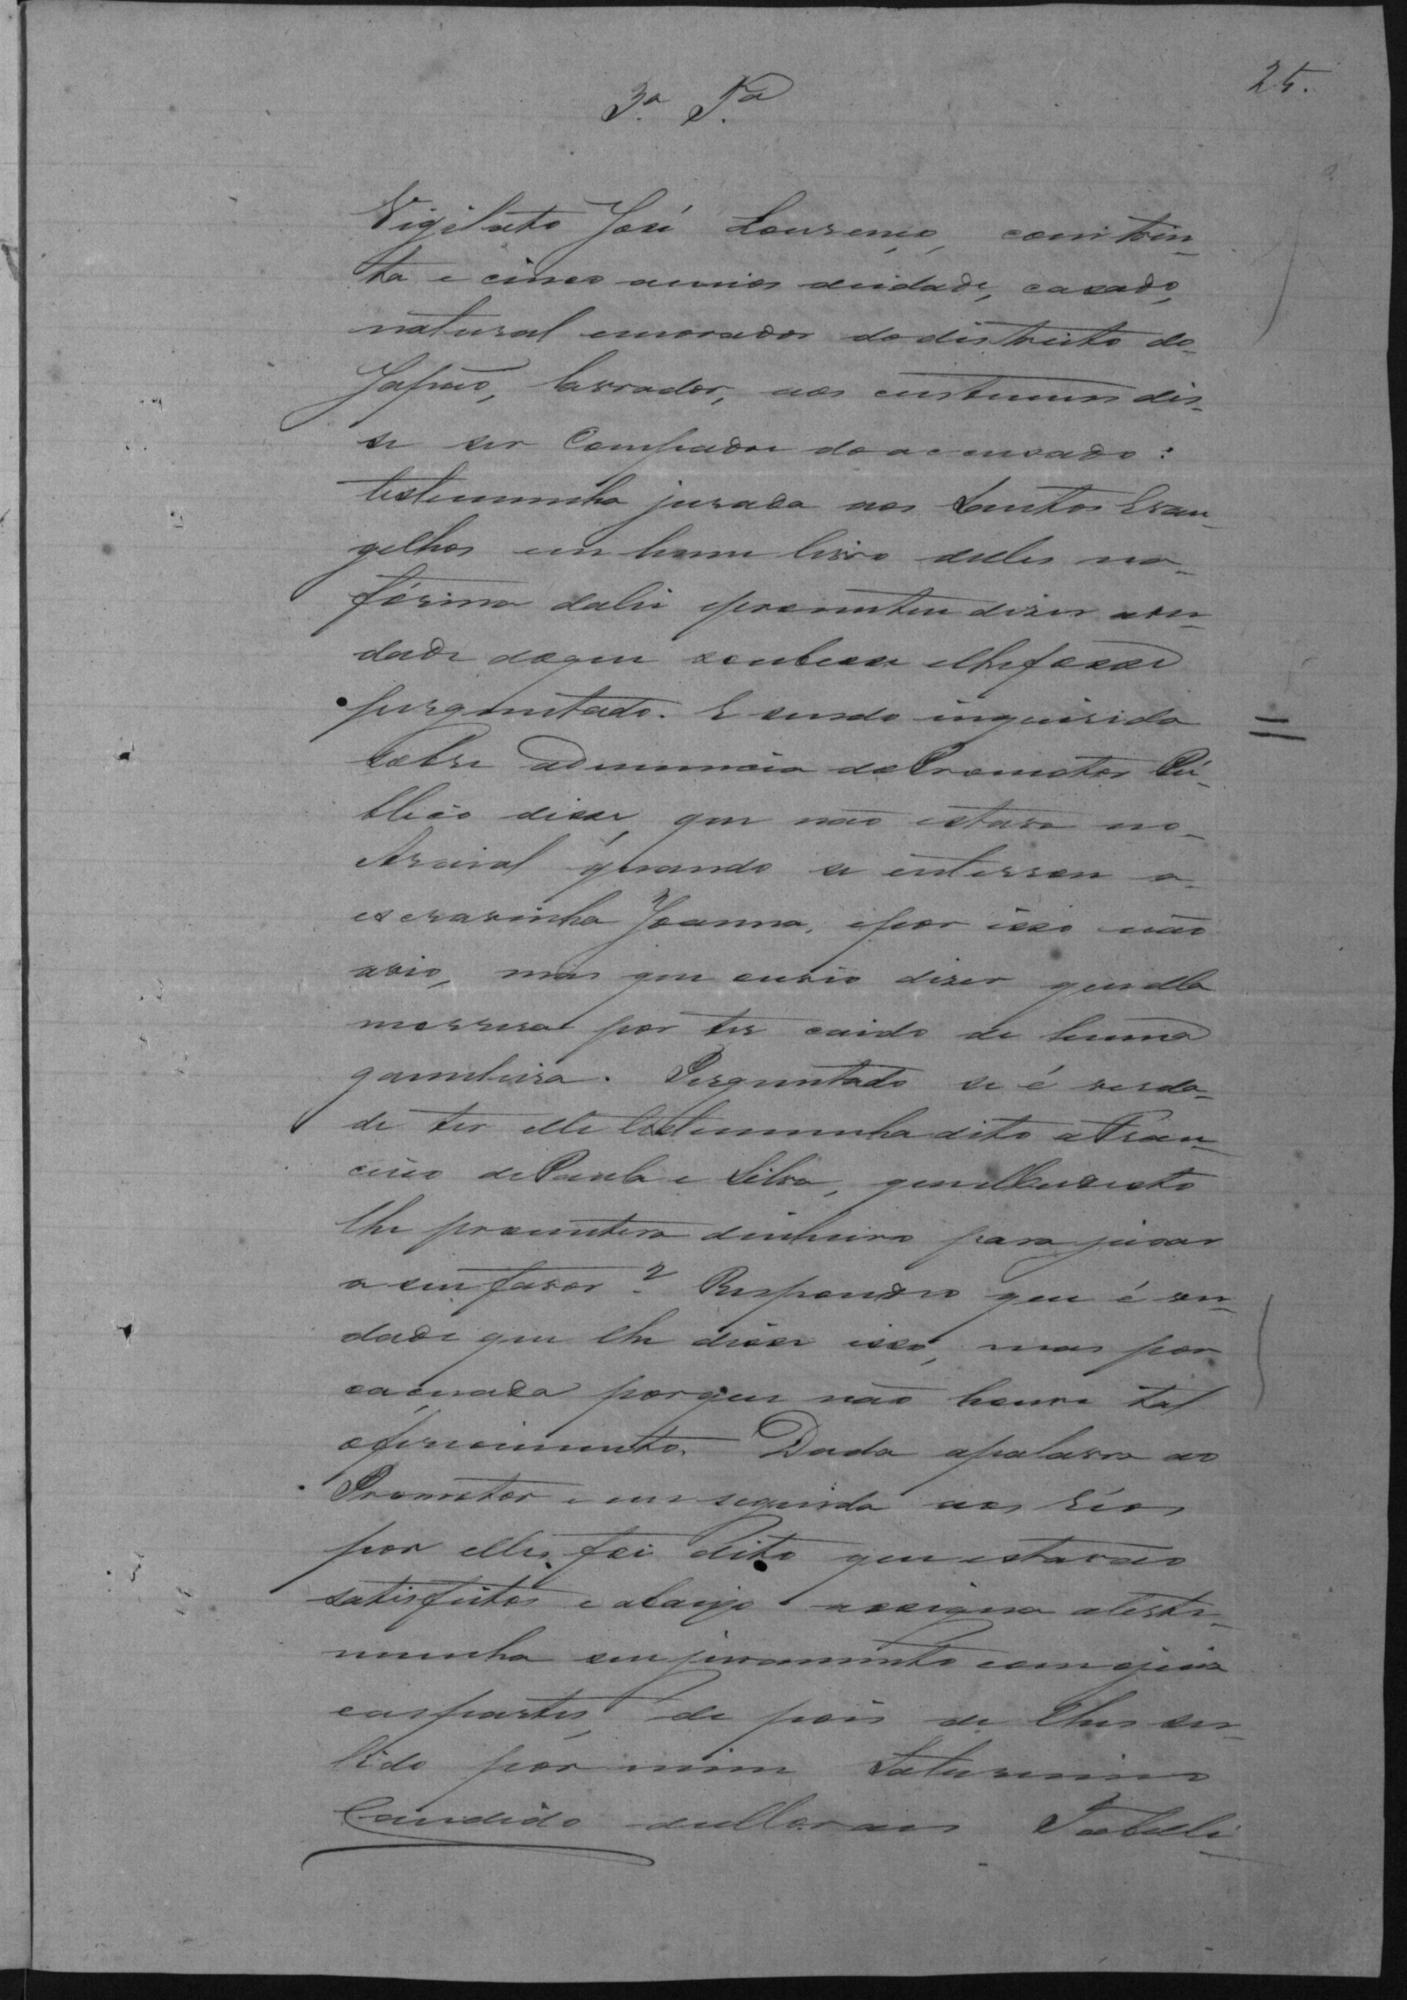 25.
3ª Tª
Vigilato José Lourenço, com trin-
ta e cinco annos deidade, casado,
natural emorador dodistricto do
Japão, lavrador, aos custumes dis-
se ser Compadre doaccusado:
testemunha jurada aos Santos Evan-
gelhos em hum livro delles na
fórma dalei eprometteu dizer aver-
dade doque soubesse elhefosse
perguntado. E sendo inquirida
sobre adenuncia doPromotor Pú-
blico disse, que não estava no
Arraial quando se enterrou a
escravinha Joanna, epor isso não
avio, mas que ouvio dizer quella
morrera por ter caido de huma
gamelleira. Perguntado se é verda-
de ter elle testemunha dito a Fran-
cisco dePaula e Silva, que
lhe promettera dinheiro para jurar
a seu favor? Respondeo que é ver-
dade que lhe disse isso, mas por
caçuada porque não houve tal
oferecimento. Dada apalavra ao
Promotor e em seguida aos Réos
por elles foi dito que estavão
satisfeitos e abaixo assigna ateste-
munha seu juramento com ojuiz
easpartes, de pois de lhes ser
lido por mim Saturnino
Candido deMoraes Tabelli-